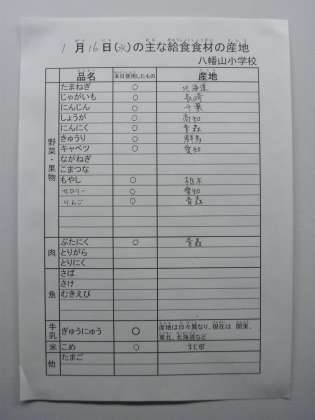 1月16日(水)の主な給食食材の産地
八幡山小学校
品名 本日使用したもの 産地
野菜・果物
たまねぎ ○ 北海道
じゃがいも ○ 長崎
にんじん ○ 千葉
しょうが ○ 高知
にんにく ○ 青森
きゅうり ○ 群馬
キャベツ ○ 愛知
ながねぎ
こまつな
もやし ○ 栃木
セロリー ○ 愛知
りんご ○ 青森
肉
ぶたにく ○ 青森
とりがら
とりにく
魚
さば
さけ
むきえび
牛乳
ぎゅうにゅう ○ 産地は日々異なり、現在は 関東、
東北、北海道など
米 こめ ○
他 たまご